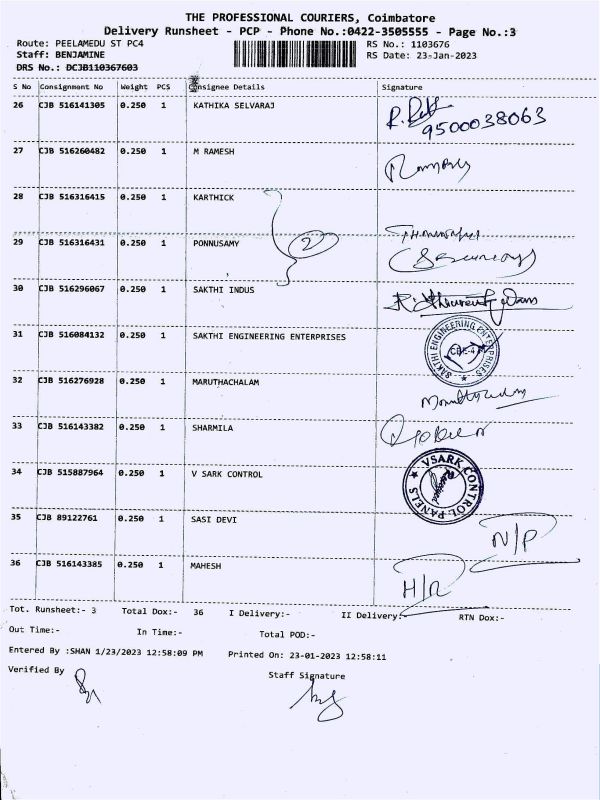 THE PROFESSIONAL COURIERS, Coimbatore
Delivery Runsheet - PCP - Phone No.:0422-3505555 - Page No.:3
Route: PEELAMEDU ST PC4 RS No.: 1103676
Staff: BENJAMINE RS Date: 23-Jan-2023
DRS No.: DCJB110367603
S No Consignment No Weight PCS Consignee Details Signature
26 CJB 516141305 0.250 1 KATHIKA SELVARAJ
9500038063
27 CJB 516260482 0.250 1 M RAMESH
28 CJB 516316415 0.250 1 KARTHICK
29 CJB 516316431 0.250 1 PONNUSAMY 2
30 CJB 516296067 0.250 1 SAKTHI INDUS
31 CJB 516084132 0.250 1 SAKTHI ENGINEERING ENTERPRISES
SAKTHI ENGINEERING ENTERPRISES
32 CJB 516276928 0.250 1 MARUTHACHALAM
33 CJB 516143382 0.250 1 SHARMILA
34 CJB 515887964 0.250 1 V SARK CONTROL
VSARK CONTROL PANELS
35 CJB 89122761 0.250 1 SASI DEVI N/P
36 CJB 516143385 0.250 1 MAHESH H/R
Tot. Runsheet:- 3 Total Dox:- 36 I Delivery:- II Delivery:- RTN Dox:-
Out Time:- In Time:- Total POD:-
Entered By :SHAN 1/23/2023 12:58:09 PM Printed On: 23-01-2023 12:58:11
Verified By Staff Signature